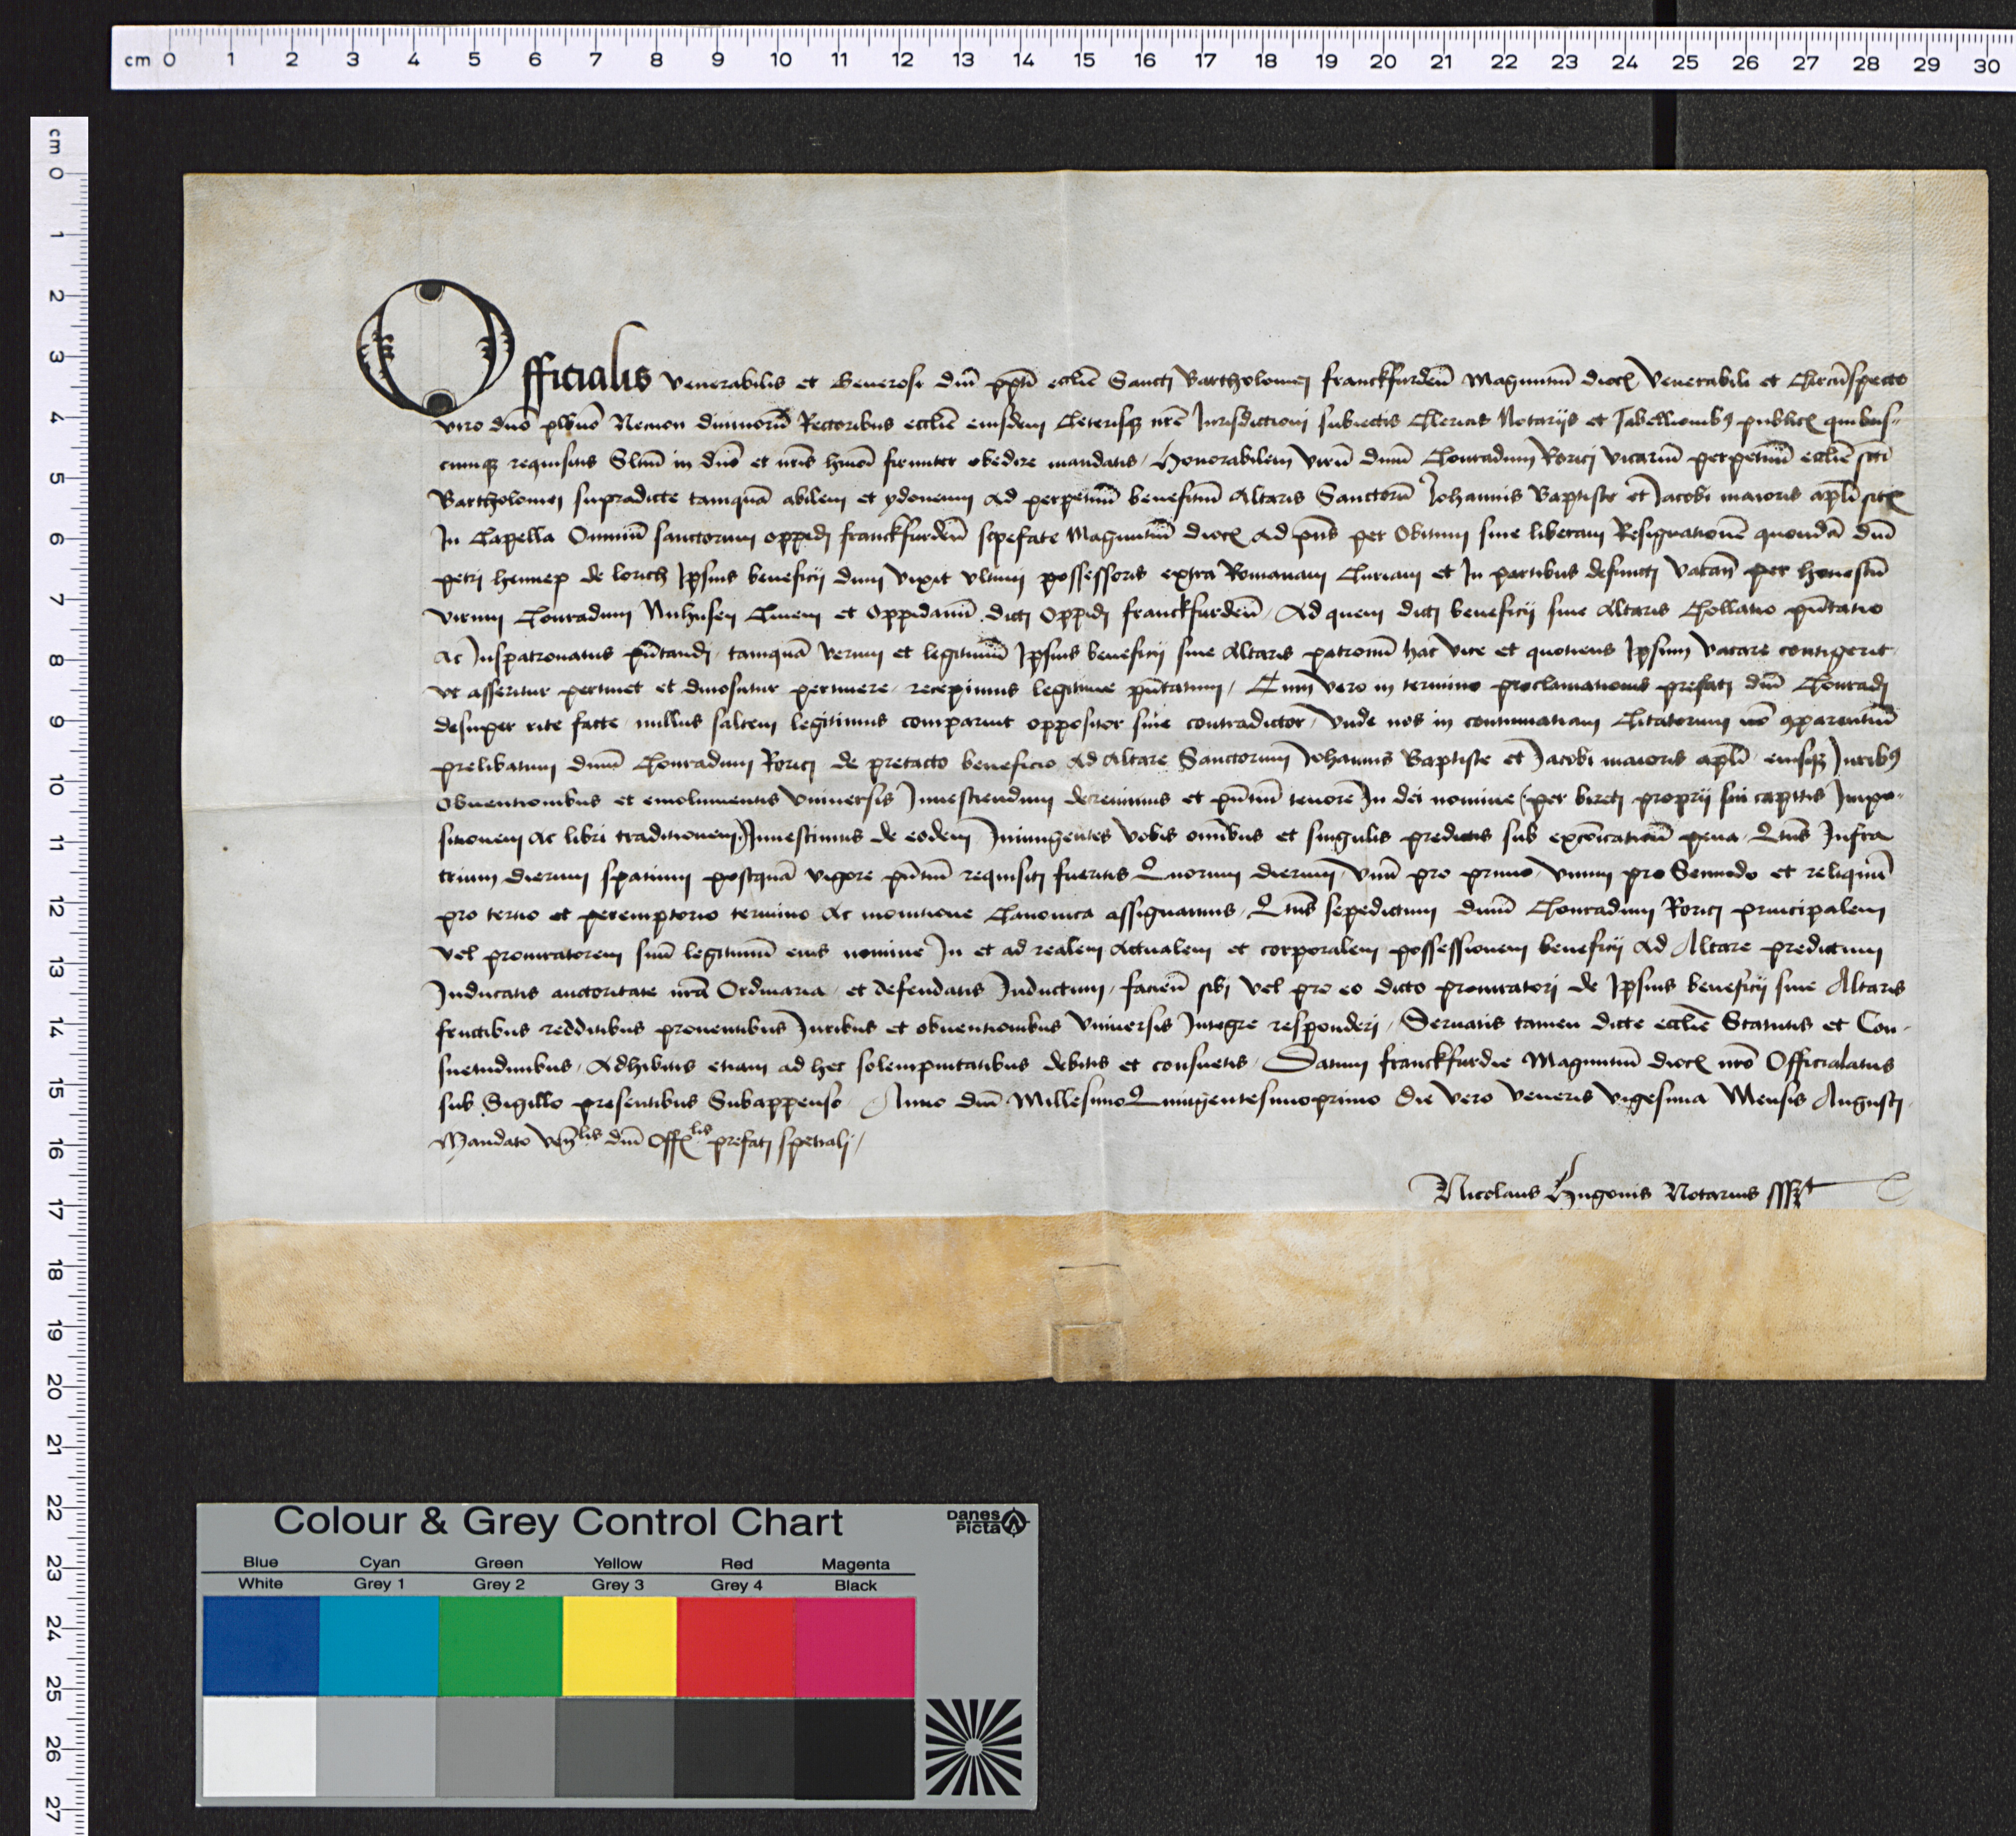 cm 0 1 2 3 4 5 6 7 8 9 10 11 12 13 14 15 16 17 18 19 20 21 22 23 24 25 26 27 28 29 30
cm 0 1 2 3 4 5 6 7 8 9 10 11 12 13 14 15 16 17 18 19 20 21 22 23 24 25 26 27
Officialis venerabilis et Generosi dnī ppti ecclie Sancti Bartholomei franckfurdeñ Maguntiñ dioc Venerabili et Circūspecto
viro dno plbno Necnon diuinorū Rectoribus ecclie eiusdem Ceterisqz nrē Jurisdictioni subiectis Clericis Notarijs et Tabellionibꝰ publicꝭ quibus-
cumqz requisitis Sltm in dno et nrīs hmoi firmiter obedire mandatis, Honorabilem virū dnm Conradum Rorici vicariū perpetuū ecclie scti
Bartholomei supradicte tamquā abilem et ydoneum ad perpetuū beneficiū Altaris Sanctorū Johannis Baptiste et Jacobi maioris apli sitꝭ
In Capella Omniū sanctorum oppidi franckfurdeñ sepefate Maguntiñ dioc ad pns per Obitum siue liberam Resignationē quondā dnī
petri hennep de lorich Ipsius beneficij dum vixit vltimi possessoris extra Romanam Curiam et In partibus defuncti vacañ per honestū
virum Conradum Nuhusen Ciuem et oppidanū dicti oppidi franckfurdeñ, Ad quem dicti beneficij siue Altaris Collatio pñtatio
ac Juspatronatus pñtandi tamquā verum et legitimū Ipsius beneficij siue Altaris patronū hac vice et quotiens Ipsum vacare contigerit
vt asseritur pertinet et dinoscitur pertinere, recepimus legitime pñtatum, Cum vero in termino proclamationis prefati dnī Conradi
desuper rite facte, nullus saltem legitimus comparuit oppositor siue contradictor, Vnde nos in contumatiam Citatorum nō cparentiū
prelibatum dnm Conradum Rorici de pretacto beneficio ad Altare Sanctorum Johannis Baptiste et Jacobi maioris apli eiusqz Juribꝰ
obuentionibus et emolumentis Vniuersis Inuestiendum decreuimus et pñtiū tenore In dei nomine (per bireti proprij sui capitis Impo-
sitionem ac libri traditionem) Inuestimus de eodem Iniungentes vobis omibus et singulis predictis sub excoicationū pena, Qtnus Infra
trium dierum spatium postquā vigore pñtiū requisiti fueritis Quorum dierum, vnū pro primo, vnum pro Secundo et reliquū
pro tertio et peremptorio termino ac monitione Canonica assignamus, Qtnus sepedictum dnm Conradum Rorici principalem
vel procuratorem suū legitimū eius nomine In et ad realem actualem et corporalem possessionem beneficij ad Altare predictum
Inducatis auctoritate nrā Ordinaria et defendatis Inductum, facieñ sibi vel pro eo dicto procuratori de Ipsius beneficij siue Altaris
fructibus redditibus prouentibus Juribus et obuentionibus Vniuersis Integre responderi, Seruatis tamen dicte ecclie Statutis et Con-
suetudinibus, Adhibitis etiam ad hec solempnitatibus debitis et consuetis, Datum franckfurdie Maguntiñ dioc nro Officialatus
sub Sigillo presentibus Subappenso Anno dnī Millesimo Quingentesimoprimo Die vero veneris vigesima Mensis Augusti
Mandato ven̄lis dnī Offlis prefati spetiali,
Nicolaus Hugonis Notarius sssꝭt
Colour & Grey Control Chart
Danes Picta
Blue Cyan Green Yellow Red Magenta
White Grey 1 Grey 2 Grey 3 Grey 4 Black